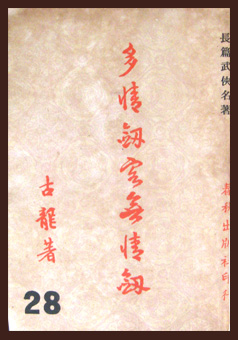 長篇武俠名著
多情劍客無情劍
古龍著
春秋出版社印行
28